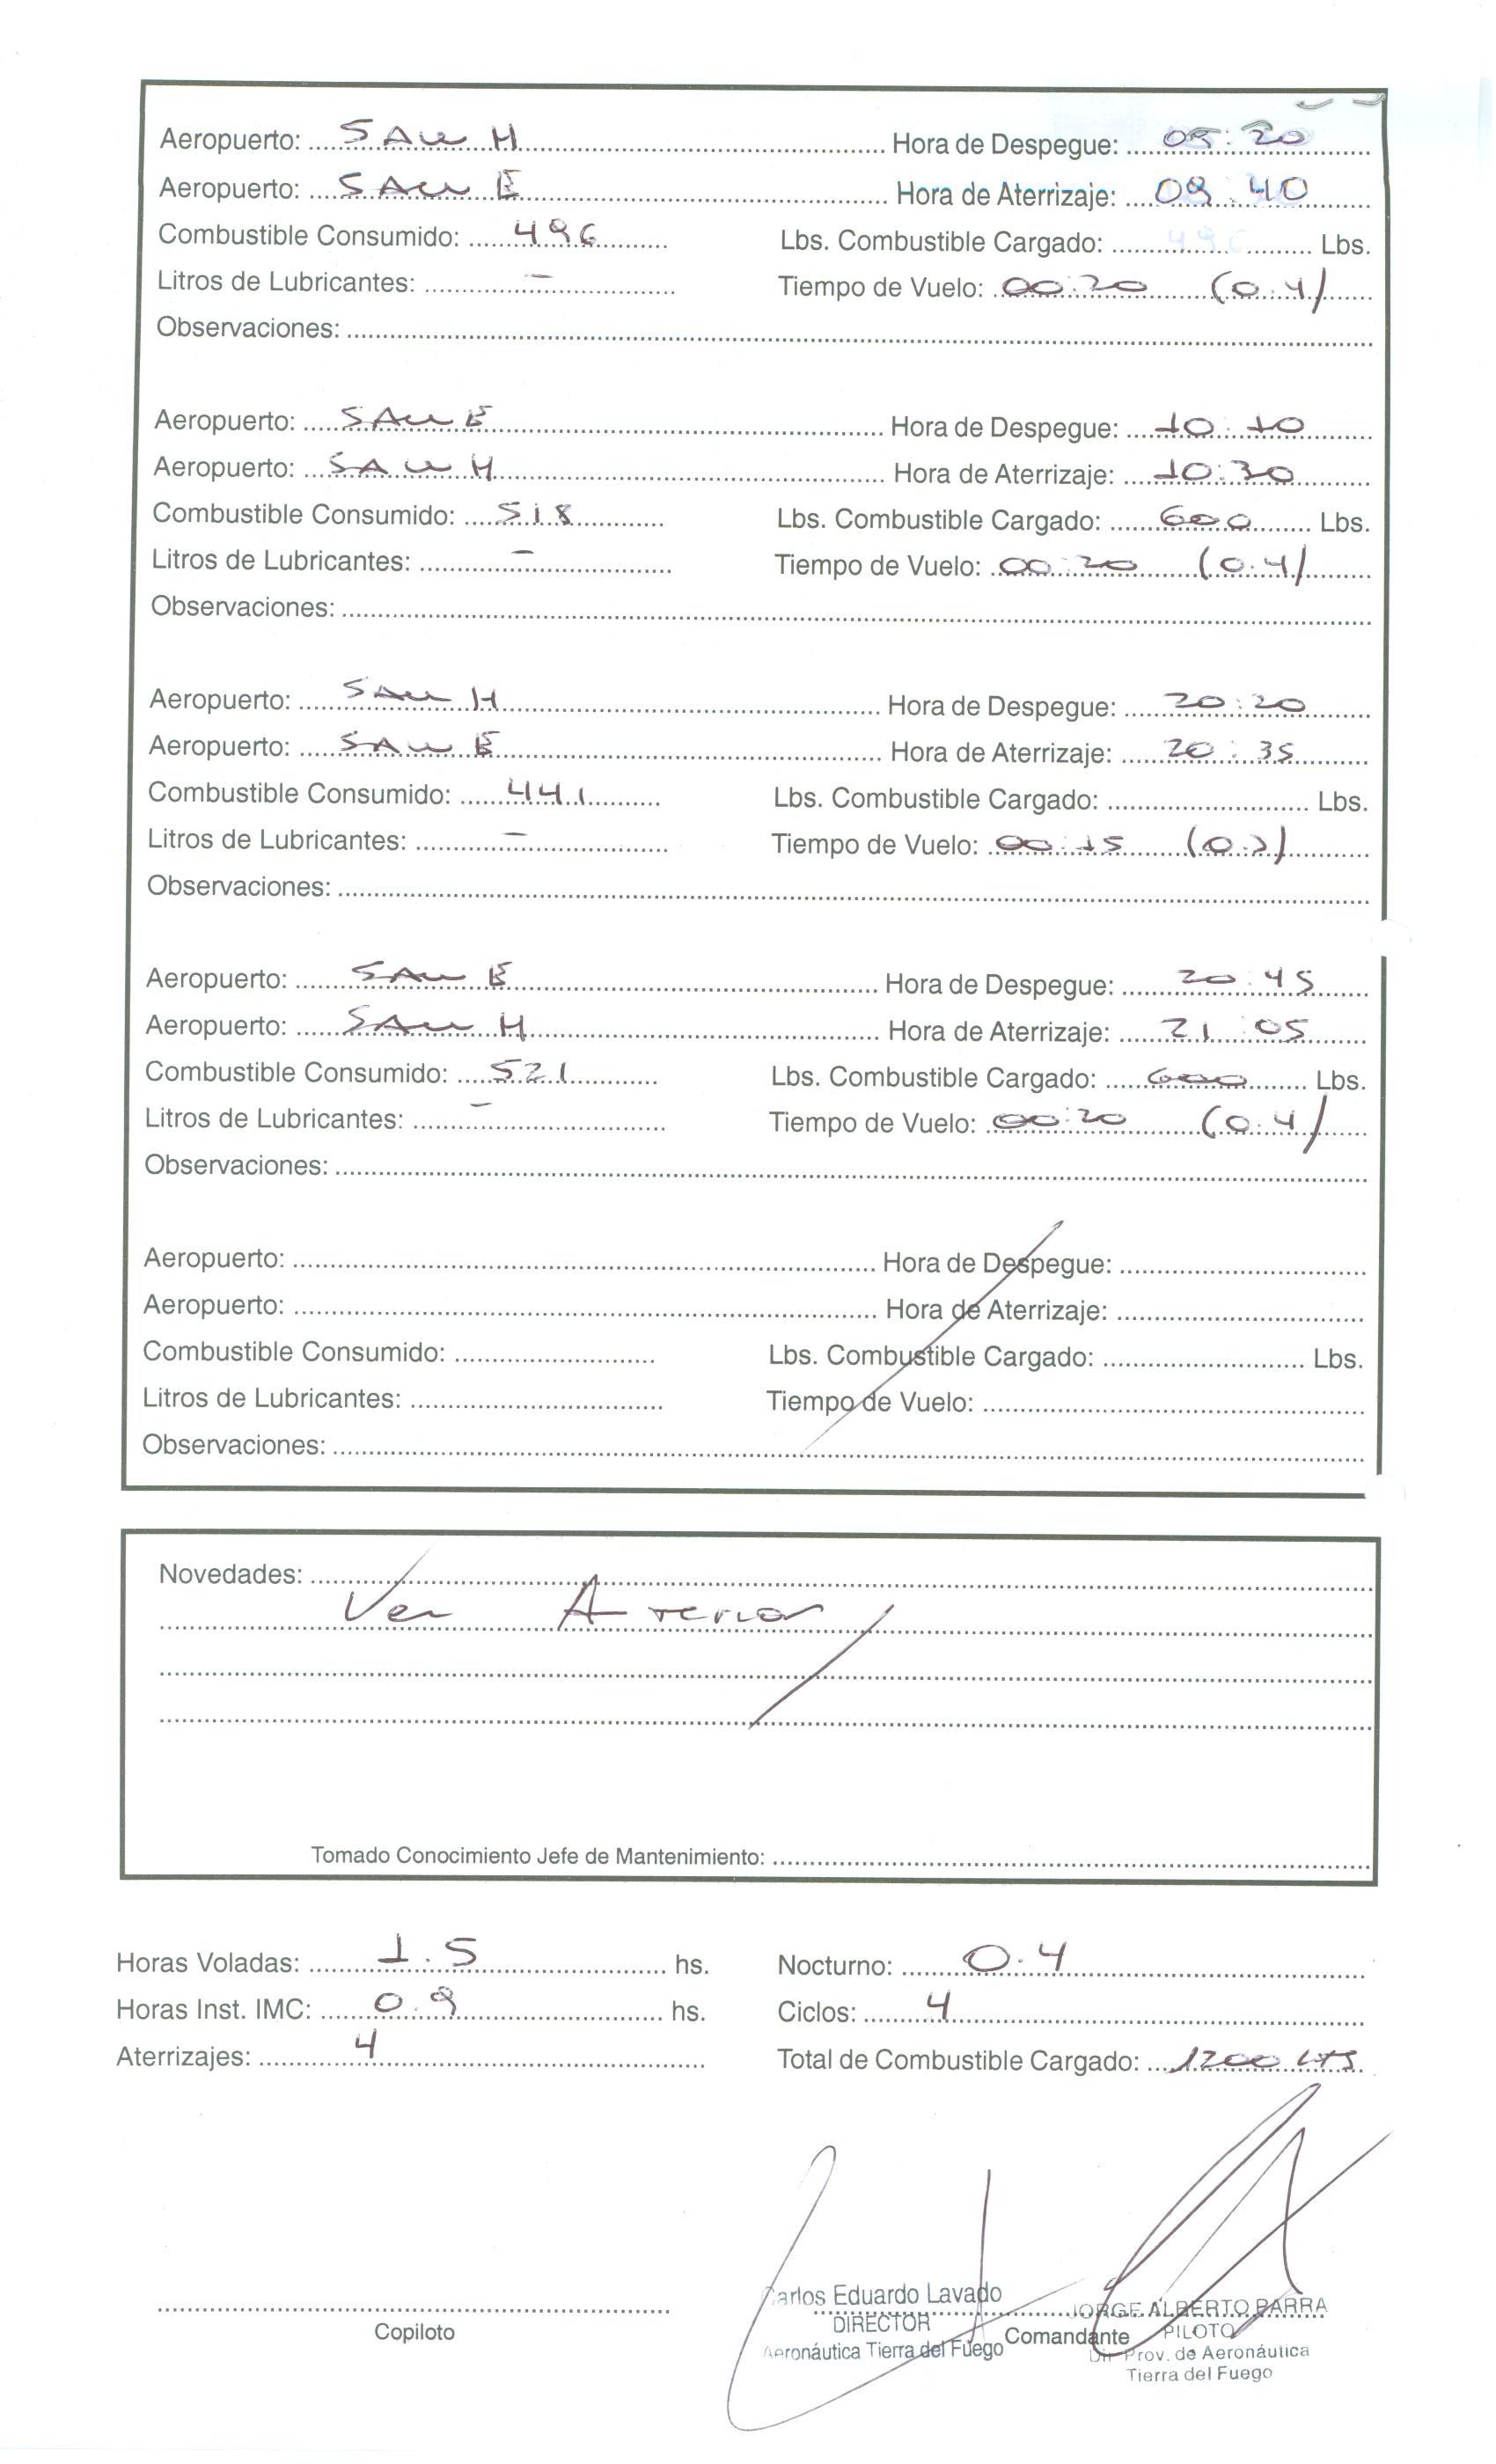 Aeropuerto: SAWH Hora de Despegue: 09:20
Aeropuerto: SAWE Hora de Aterrizaje: 09:40
Combustible Consumido: 496 Lbs. Combustible Cargado: 496 Lbs.
Litros de Lubricantes: - Tiempo de Vuelo: 00:20 (0.4)
Observaciones:
Aeropuerto: SAWE Hora de Despegue: 10:10
Aeropuerto: SAWH Hora de Aterrizaje: 10:30
Combustible Consumido: 518 Lbs. Combustible Cargado: 600 Lbs.
Litros de Lubricantes: - Tiempo de Vuelo: 00:20 (0.4)
Observaciones:
Aeropuerto: SAWH Hora de Despegue: 20:20
Aeropuerto: SAWE Hora de Aterrizaje: 20:35
Combustible Consumido: 441 Lbs. Combustible Cargado: Lbs.
Litros de Lubricantes: - Tiempo de Vuelo: 00:15 (0.3)
Observaciones:
Aeropuerto: SAWE Hora de Despegue: 20:45
Aeropuerto: SAWH Hora de Aterrizaje: 21:05
Combustible Consumido: 521 Lbs. Combustible Cargado: 600 Lbs.
Litros de Lubricantes: - Tiempo de Vuelo: 00:20 (0.4)
Observaciones:
Aeropuerto: Hora de Despegue:
Aeropuerto: Hora de Aterrizaje:
Combustible Consumido: Lbs. Combustible Cargado: Lbs.
Litros de Lubricantes: Tiempo de Vuelo:
Observaciones:
Novedades:
Ver Anterior
Tomado Conocimiento Jefe de Mantenimiento:
Horas Voladas: 1.5 hs. Nocturno: 0.4
Horas Inst. IMC: 0.9 hs. Ciclos: 4
Aterrizajes: 4 Total de Combustible Cargado: 1200 LTS.
Carlos Eduardo Lavado JORGE ALBERTO PARRA
Copiloto DIRECTOR Comandante PILOTO
Aeronáutica Tierra del Fuego Dir. Prov. de Aeronáutica
Tierra del Fuego